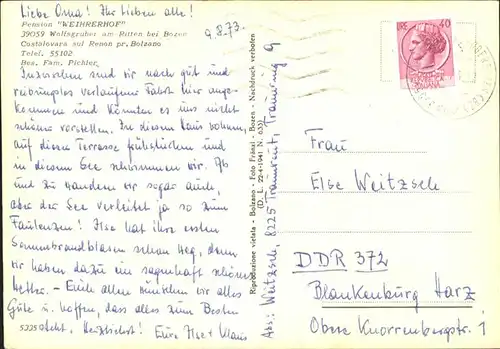 Liebe Oma! Ihr Lieben alle!
Pension "WEIHRERHOF"
39059 Wolfsgruben am Ritten bei Bozen
Costalovara sul Renon pr. Bolzano
Telef. 55102
Bes. Fam. Pichler
9.8.73.
Inzwischen sind wir nach gut und
reibungslos verlangter Fahrt hier ange-
kommen und könnten es uns nicht
schöner vorstellen. In diesem Haus wohnen,
auf dieser Terrasse frühstücken und
in diesem See schwimmen wir. Ab
und zu wandern wir sogar auch,
aber der See verleitet ja so zum
Faulenzen! Ilse hat ihre ersten
Sonnenbrandblasen schon weg, denn
wir haben dazu ein sagenhaft schönes
Wetter. - Euch allen wünschen wir alles
Gute u. hoffen, dass alles zum Besten
steht. Herzlichst! Eure Ilse + Klaus
5335
Riproduzione vietata - Bolzano - Foto Fränzl - Bozen - Nachdruck verboten
(D. L. 22-4-1941 N. 633)
Abs: Weitzsch, 8225 Traunreut, Traunring 9
40
Frau
Else Weitzsch
DDR 372
Blankenburg Harz
Obere Knorrenbergstr. 1